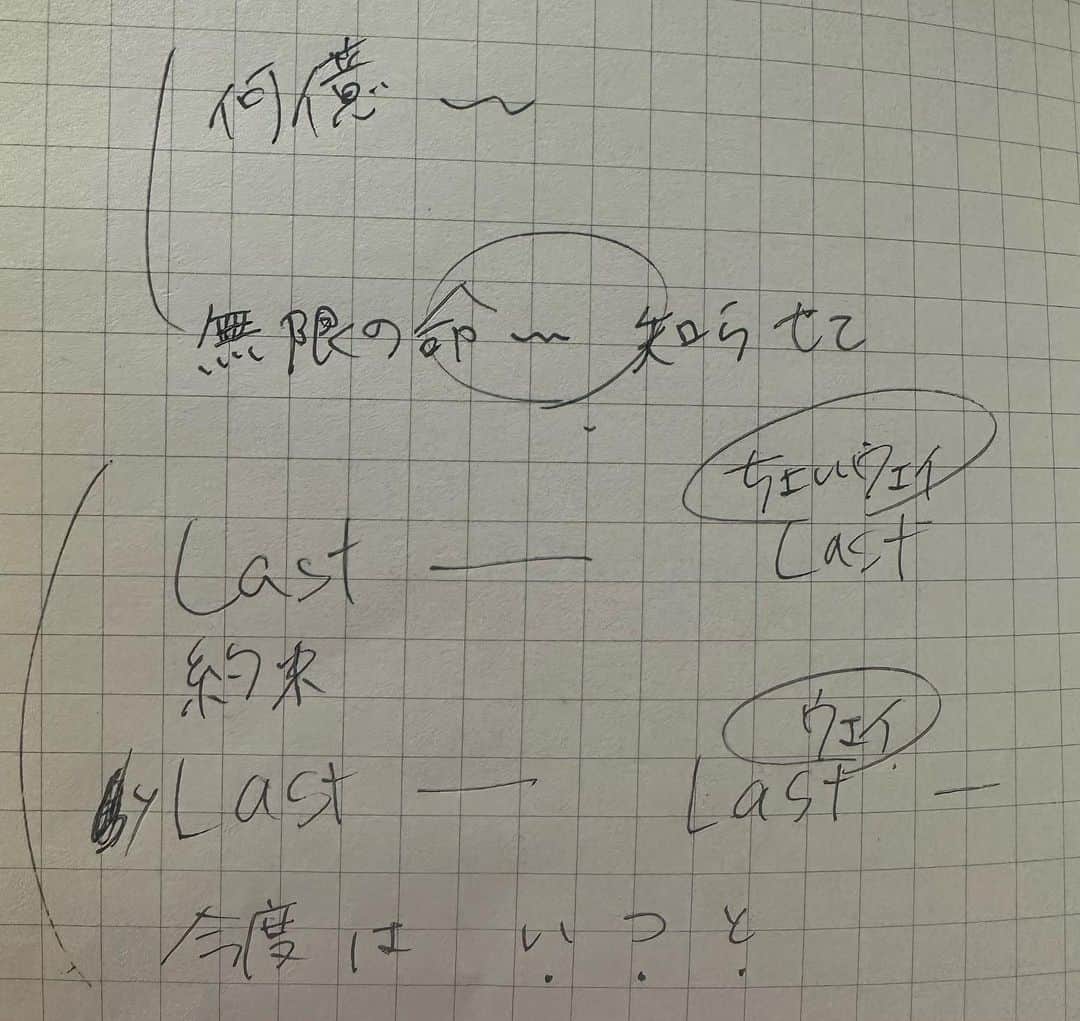 何億〜
無限の命〜知らせて
ちょいウェイ
Last ー Last
約束
ウェイ
Last ー Last ー
今度は いつと